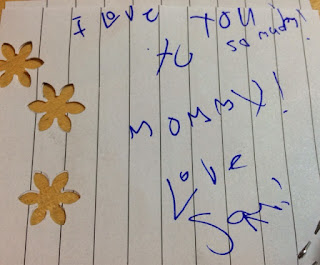 I Love YOU
so much!
to
MOMMY!
Love